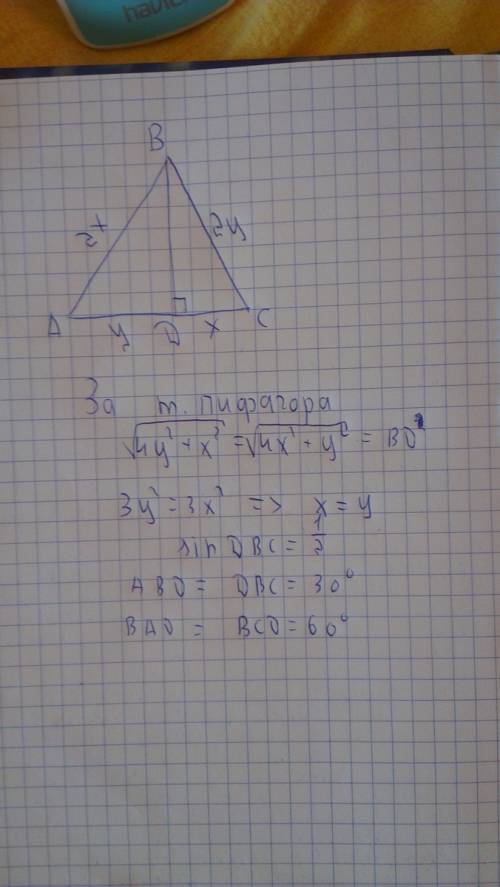 havic
B
2x
2y
A
y
D
x
C
За т. пифагора
√4y² - x² = √4x² - y² = BD
3y² = 3x² => x = y
sin DBC = 1/2
ABD = DBC = 30°
BAD = BCD = 60°